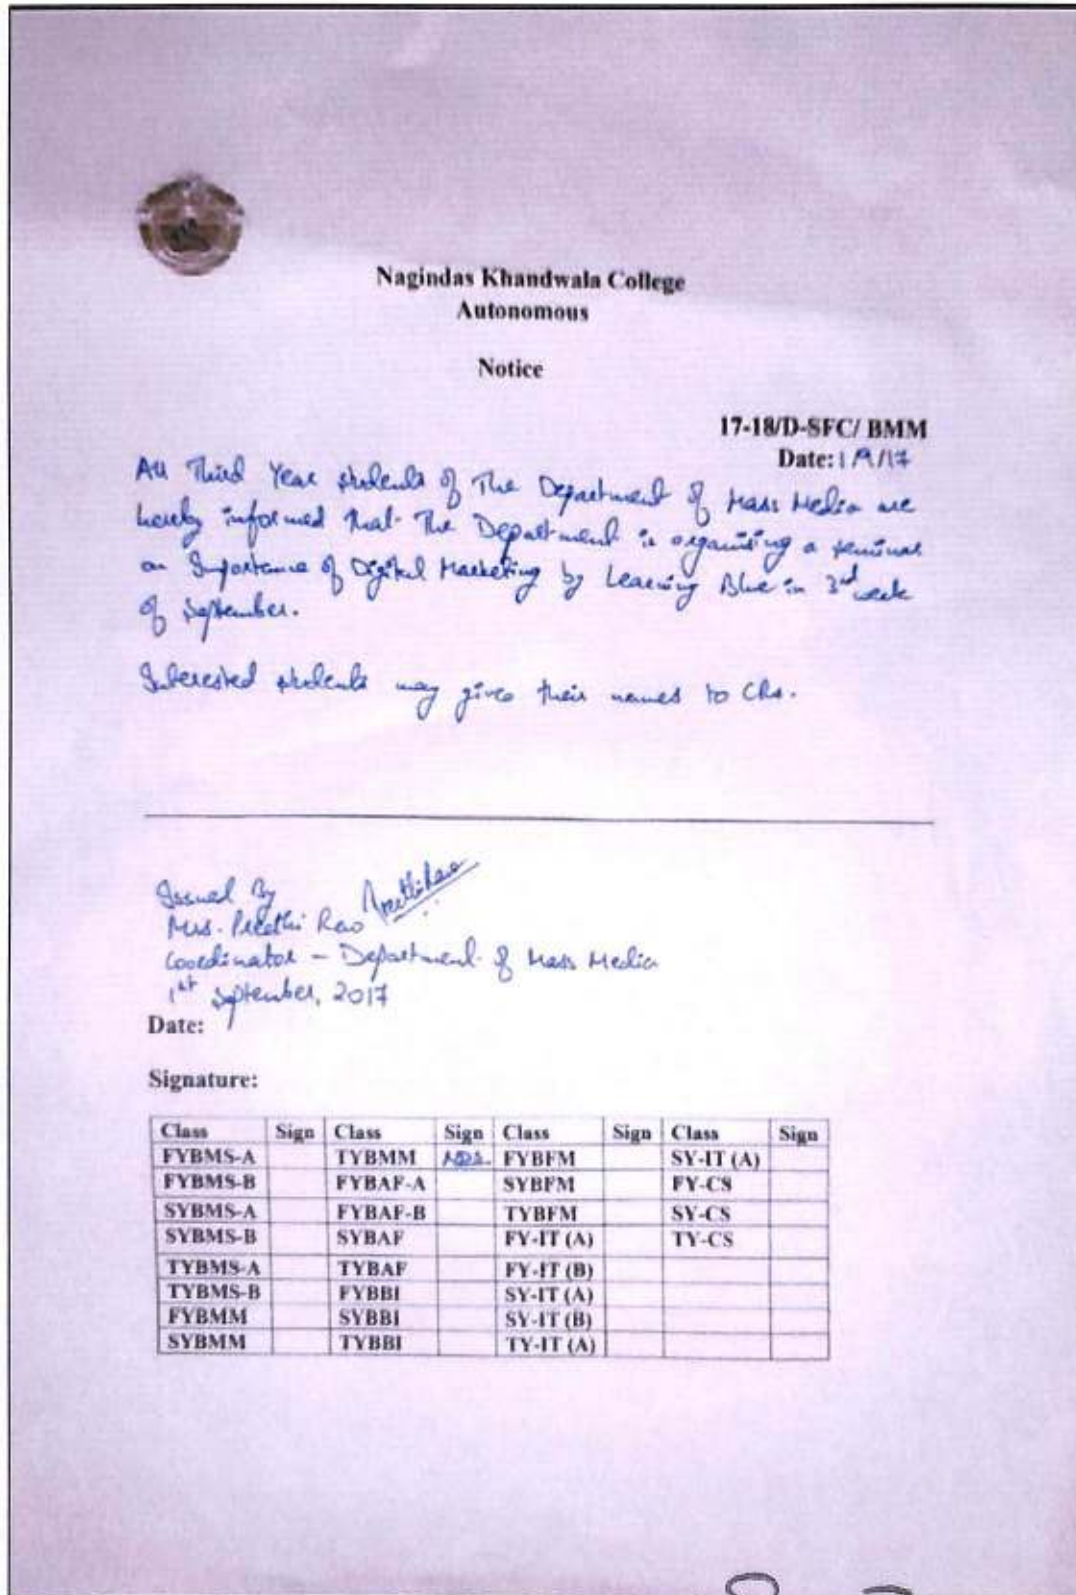 Nagindas Khandwala College
Autonomous
Notice
17-18/D-SFC/ BMM
Date: 1/9/17
All Third Year students of The Department of Mass Media are
hereby informed that The Department is organising a seminar
on Importance of Digital Marketing by Learning Blue in 3rd week
of September.
Interested students may give their names to CRs.
Issued By
Mrs. Preethi Rao Preethi Rao
Coordinator - Department of Mass Media
1st September, 2017
Date:
Signature:
Class Sign Class Sign Class Sign Class Sign
FYBMS-A TYBMM FYBFM SY-IT (A)
FYBMS-B FYBAF-A SYBFM FY-CS
SYBMS-A FYBAF-B TYBFM SY-CS
SYBMS-B SYBAF FY-IT (A) TY-CS
TYBMS-A TYBAF FY-IT (B)
TYBMS-B FYBBI SY-IT (A)
FYBMM SYBBI SY-IT (B)
SYBMM TYBBI TY-IT (A)